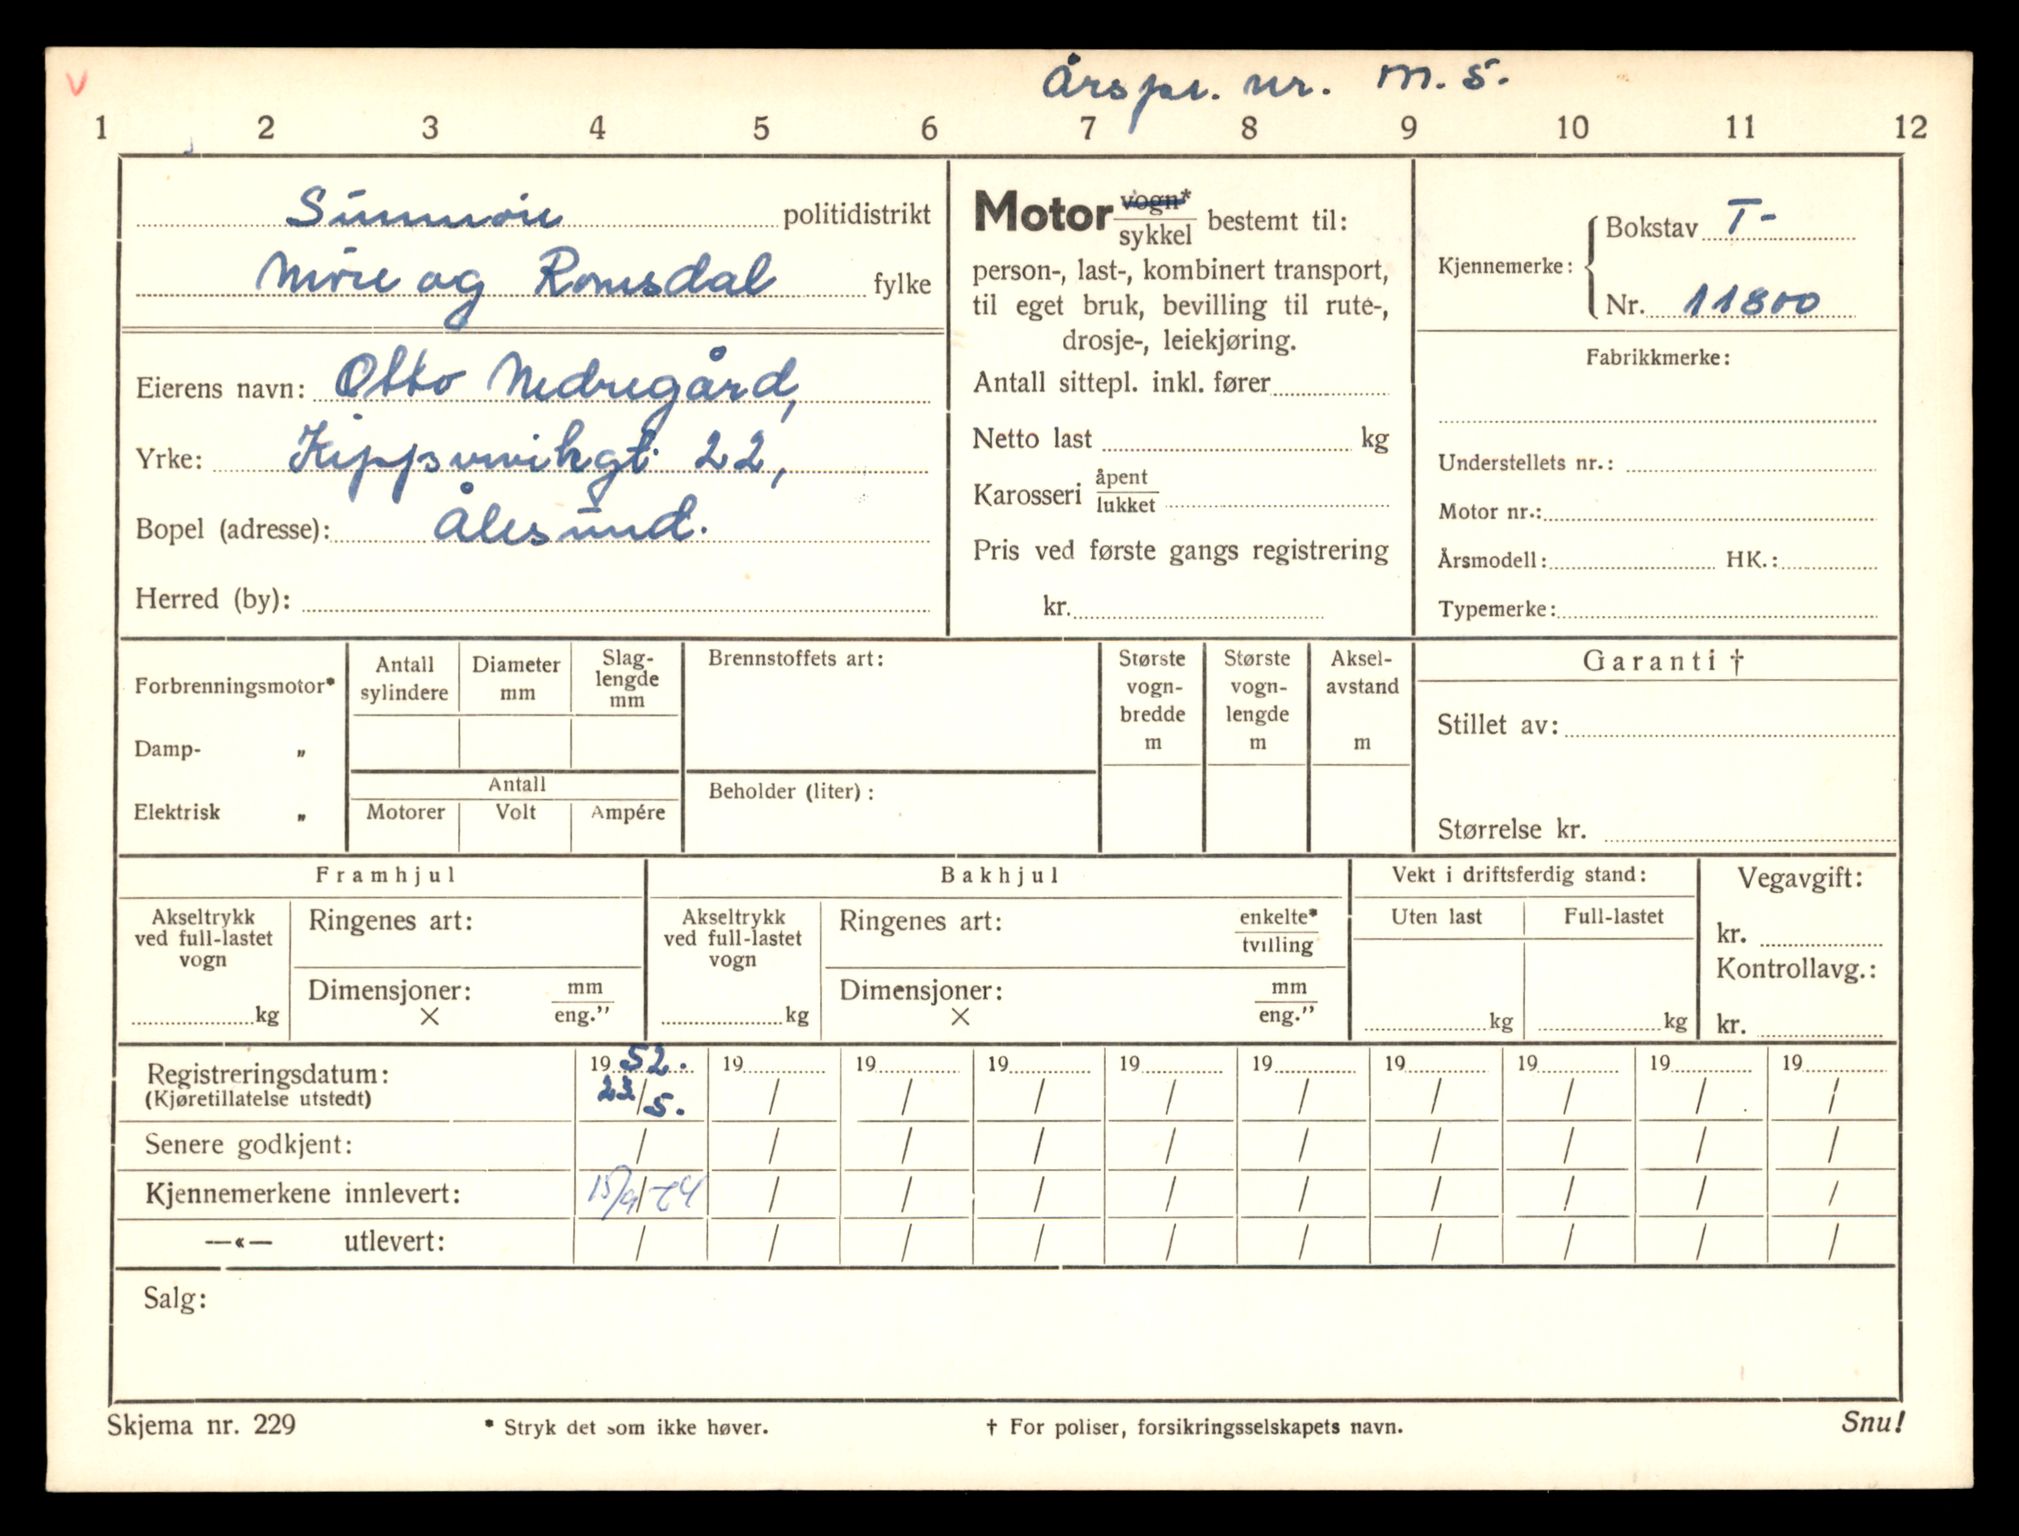 V
Årspr. nr. M. 5.
1 2 3 4 5 6 7 8 9 10 11 12
Sunnmøre politidistrikt
Møre og Romsdal fylke
Eierens navn: Otto Nedregård,
Yrke: Kippervikgt. 22,
Bopel (adresse): Ålesund.
Herred (by):
Motor vogn* / sykkel bestemt til:
person-, last-, kombinert transport,
til eget bruk, bevilling til rute-,
drosje-, leiekjøring.
Antall sittepl. inkl. fører
Netto last kg
Karosseri åpent / lukket
Pris ved første gangs registrering
kr.
Kjennemerke: Bokstav T-
Nr. 11800
Fabrikkmerke:
Understellets nr.:
Motor nr.:
Årsmodell: HK.:
Typemerke:
Forbrenningsmotor*
Damp- „
Elektrisk „
Antall sylindere
Diameter mm
Slag-
lengde
mm
Antall
Motorer Volt Ampére
Brennstoffets art:
Beholder (liter):
Største
vogn-
bredde
m
Største
vogn-
lengde
m
Aksel-
avstand
m
Garanti †
Stillet av:
Størrelse kr.
Framhjul
Akseltrykk
ved full-lastet
vogn
kg
Ringenes art:
Dimensjoner: mm / eng."
×
Bakhjul
Akseltrykk
ved full-lastet
vogn
kg
Ringenes art: enkelte* / tvilling
Dimensjoner: mm / eng."
×
Vekt i driftsferdig stand:
Uten last Full-lastet
kg kg
Vegavgift:
kr.
Kontrollavg.:
kr.
Registreringsdatum: 1952. 19 19 19 19 19 19 19 19 19
(Kjøretillatelse utstedt) 23/5. / / / / / / / / /
Senere godkjent: / / / / / / / / / /
Kjennemerkene innlevert: 15/9 / 64 / / / / / / / / /
—«— utlevert: / / / / / / / / / /
Salg:
Skjema nr. 229 * Stryk det som ikke høver. † For poliser, forsikringsselskapets navn. Snu!